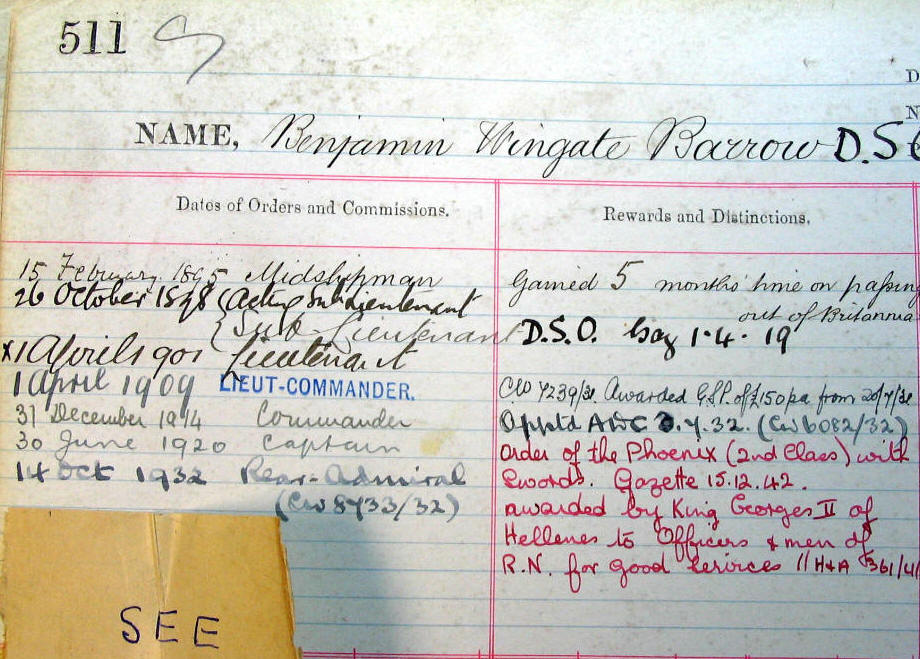 511
D
N
NAME, Benjamin Wingate Barrow D.S
Dates of Orders and Commissions.
Rewards and Distinctions.
15 February 1895 Midshipman
26 October 1898 (Acting Sub Lieutenant
Sub-Lieutenant
x1 April 1901 Lieutenant
1 April 1909 LIEUT-COMMANDER.
31 December 1914 Commander
30 June 1920 Captain
14 Oct 1932 Rear-Admiral
(CW 8733/32)
Gained 5 months' time on passing
out of Britannia
D.S.O. Gaz 1.4.19
CW 7239/31. Awarded G.S.P. of £150 pa from
Apptd ADC 7.32. (CW 6082/32)
Order of the Phoenix (2nd Class) with
Swords. Gazette 15.12.42.
awarded by King Georges II of
Hellenes to Officers & men of
R.N. for good services // H&A 361/41
SEE